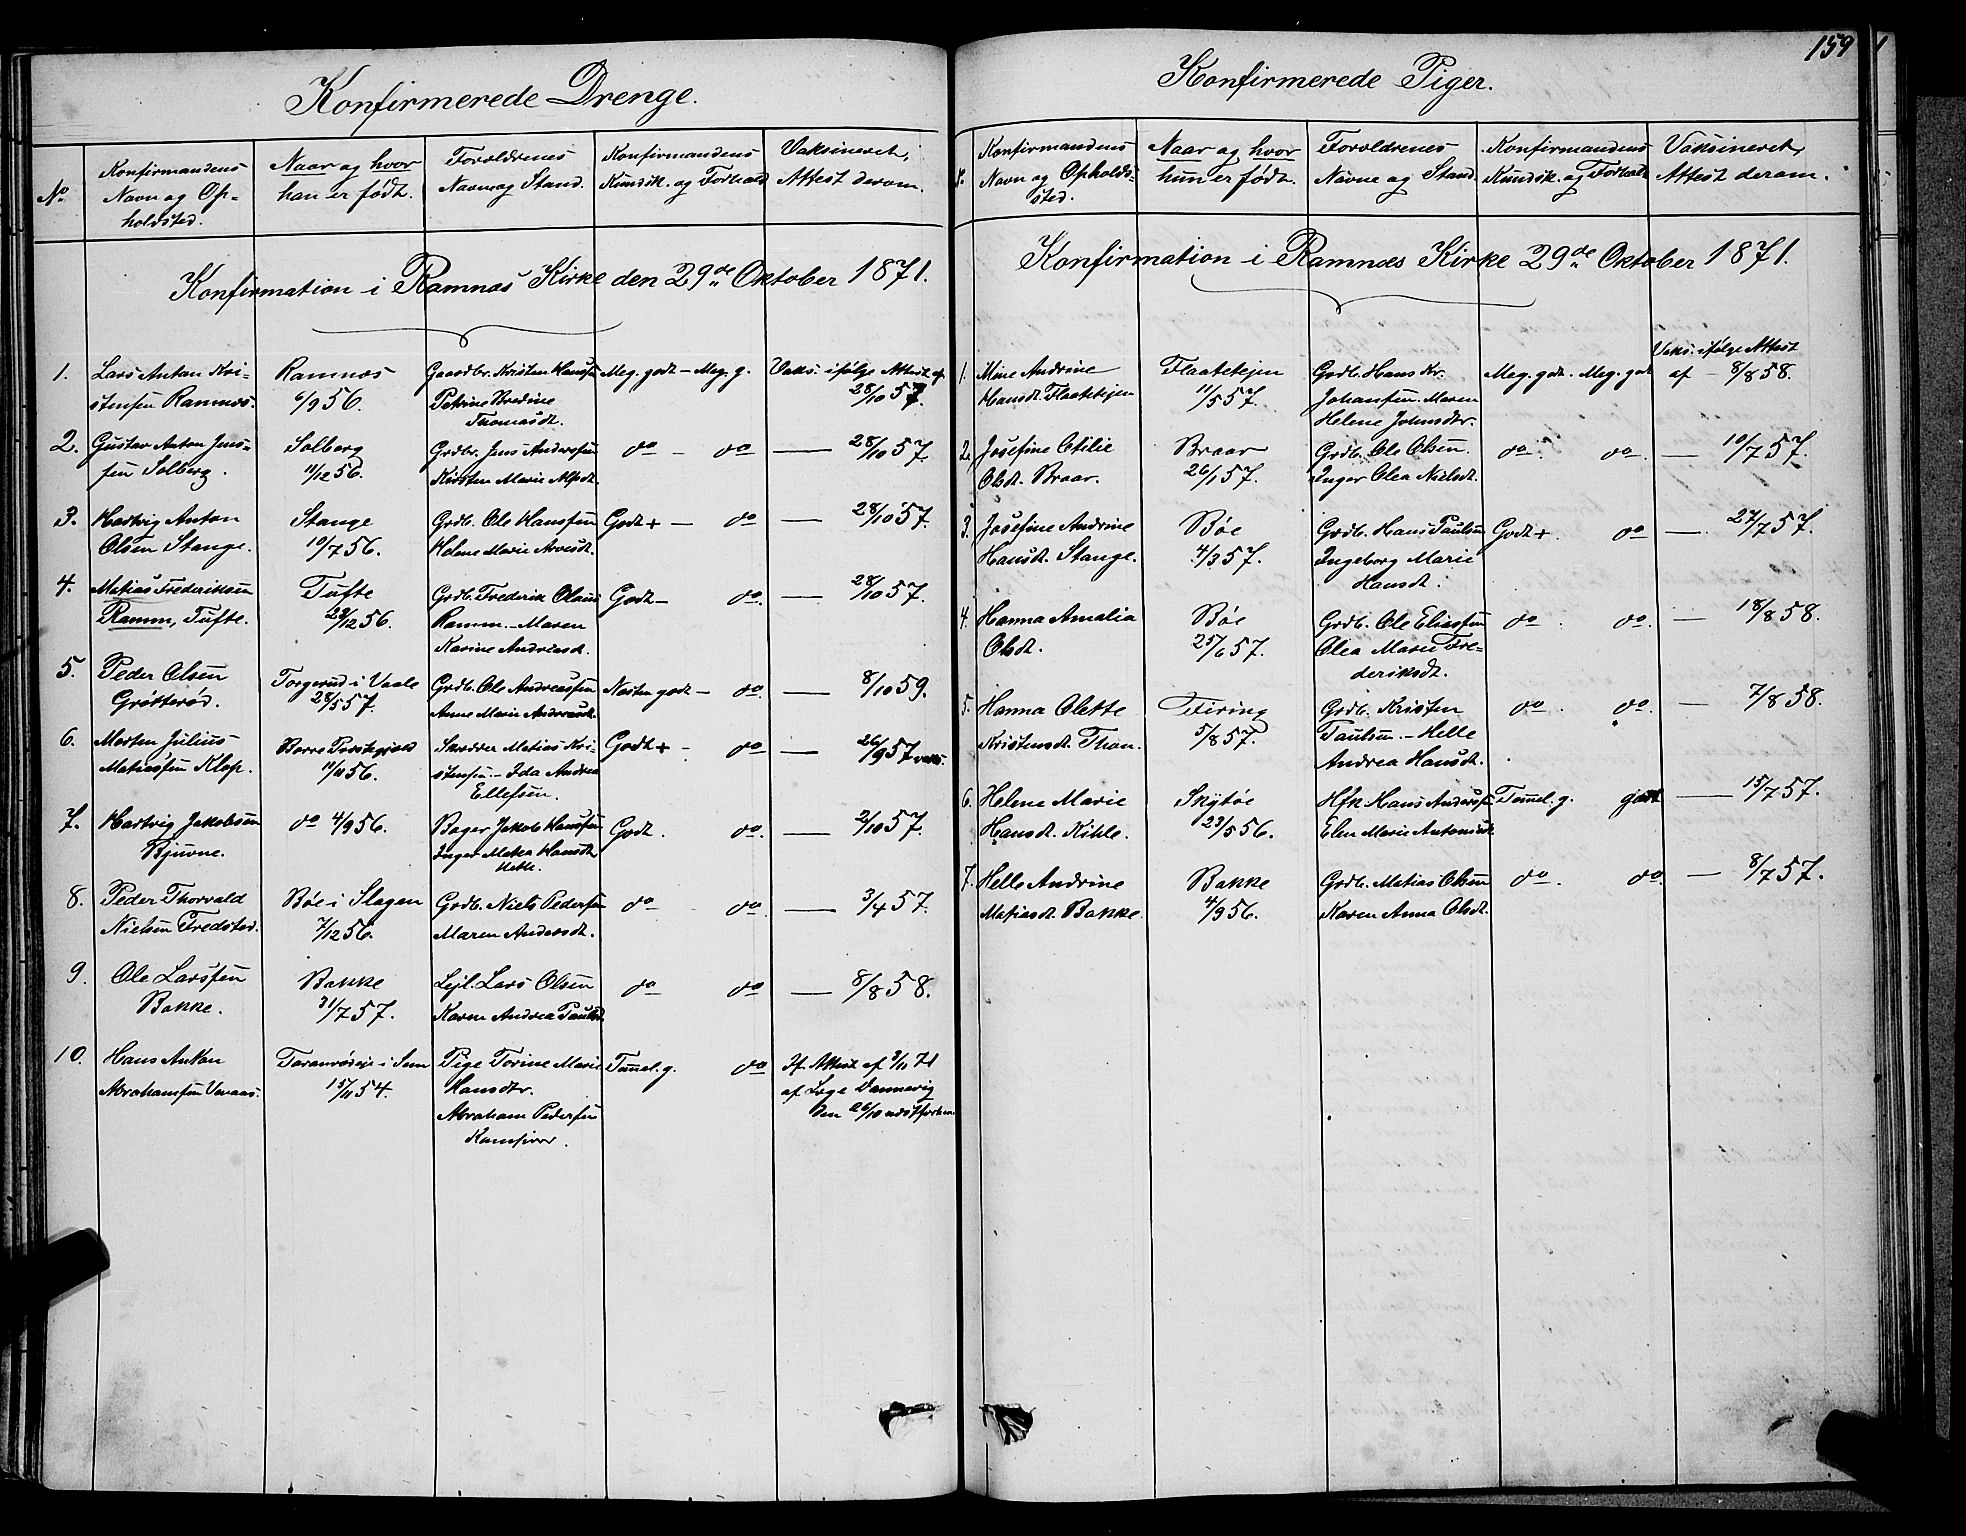 159
Konfirmerede Drenge.
No
Konfirmandens
Navn og Op-
holdsted.
Naar og hvor
han er født.
Forældrenes
Navne og Stand.
Konfirmandens
Kundsk. og Forhold
Vaksineret,
Attest derom.
Konfirmation i Ramnæs Kirke den 29de Oktober 1871.
1. Lars Anton Kri-
stensen Ramnæs.
Ramnæs
6/9 56.
Gaardbr. Kristen Hansen
Petrine Bredine
Thomasdt.
Meg. godt - Meg. g.
Vaks. ifølge Attest af
28/10 57.
2. Gustav Anton Jens-
sen Solberg.
Solberg
11/12 56.
Grdbr. Jens Anderssen
Kirsten Marie Alfsdt.
do - do — 28/10 57.
3. Hartvig Anton
Olsen Stange.
Stange
10/7 56.
Grdb. Ole Hanssen
Helene Marie Arvesdt.
Godt + - do — 28/10 57.
4. Matias Frederiksen
Ramm, Tufte.
Tufte
23/12 56.
Grdb. Frederik Olaus
Ramm. - Maren
Karine Andreasdt.
Godt - do. — 28/10 57.
5. Peder Olsen
Grøtterød.
Torgerud i Vaale
28/5 57.
Grdb. Ole Andreassen
Anne Marie Andreasdt.
Næsten godt - do. — 8/10 59.
6. Morten Julius
Matiassen Klop.
10/11 56.
Skrædder Matias Kri-
stensen. - Ida Andrea
Ellefsen.
Godt + - do — 26/9 57 vaks.
7. Hartvig Jakobsen
Bjuvne.
do 4/9 56.
Bager Jakob Hanssen
Inger Matea Hansdt.
Godt. do. — 2/10 57.
8. Peder Thorvald
Nielsen Fredsted.
Bøe i Slagen
7/12 56.
Grdb. Niels Pedersen
Maren Andersdt.
do - do. — 3/4 57.
9. Ole Larssen
Bakke.
Bakke
31/7 57.
Lejl. Lars Olsen
Karen Andrea Paulsd.
do do — 8/8 58.
10. Hans Anton
Abrahamsen
i Sem
15/11 54.
Pige Torine Marie
Hansdtr.
Abraham Pedersen
Temmel. g. do
If. Attest af 3/11 71
af Læge Dannevig
den 26/10
Konfirmerede Piger.
Konfirmandens
Navn og Opholds-
sted.
Naar og hvor
hun er født.
Forældrenes
Navne og Stand.
Konfirmandens
Kundsk. og Forhold
Vaksineret,
Attest derom.
Konfirmation i Ramnæs Kirke 29de Oktober 1871.
1. Mine Andrine
Hansdt. Flaatetejen
Flaatetejen
11/5 57.
Grdb. Hans Kr.
Johansen. Maren
Helene Johnsdtr.
Meg. godt. Meg. godt
Vaks. ifølge Attest
af - 8/8 58.
2. Josefine Otilie
Olsdt. Braar.
Braar
26/1 57.
Grdb. Ole Olsen.
Inger Olea Nielsdt.
do. do. — 10/7 57.
3. Josefine Andrine
Hansdt. Stange.
Bøe
4/3 57.
Grdb. Hans Paulsen
Ingeborg Marie
Hansdt.
Godt +. do —. 27/7 57.
4. Hanna Amalia
Olsdt.
Bøe
25/6 57.
Grdb. Ole Eliassen
Olea Marie Fre-
deriksdt.
do. do. — 18/8 58.
5. Hanna Olette
Kristensdt. Thon.
Firing
5/8 57.
Grdb. Kristen
Paulsen. - Helle
Andrea Hansdt.
do. do. — 7/8 58.
6. Helene Marie
Hansdt. Kihle.
Skytøe
23/5 56.
Hfk Hans Anderss.
Elen Marie Antonisdt.
Temmel. g. godt — 15/7 57.
7. Helle Andrine
Matiasdt. Bakke.
Bakke
4/9 56.
Grdb. Matias Olsen
Karen Anna Olsdt.
do. do. — 8/7 57.